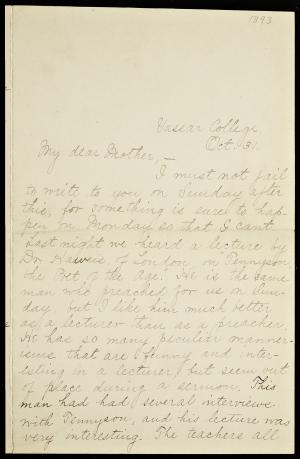 1893
Vassar College,
Oct. 31.
My dear Mother,—
I must not fail
to write to you on Sunday after
this, for something is sure to hap-
pen on Monday so that I can't.
Last night we heard a lecture by
Dr. Haweis of London on Tennyson,
the Poet of the Age. He is the same
man who preached for us on Sun-
day but I like him much better
as a lecturer than as a preacher.
He has so many peculiar manner-
isms that are funny and inter-
esting in a lecturer, but seem out
of place during a sermon. This
man had had several interviews
with Tennyson, and his lecture was
very interesting. The teachers all